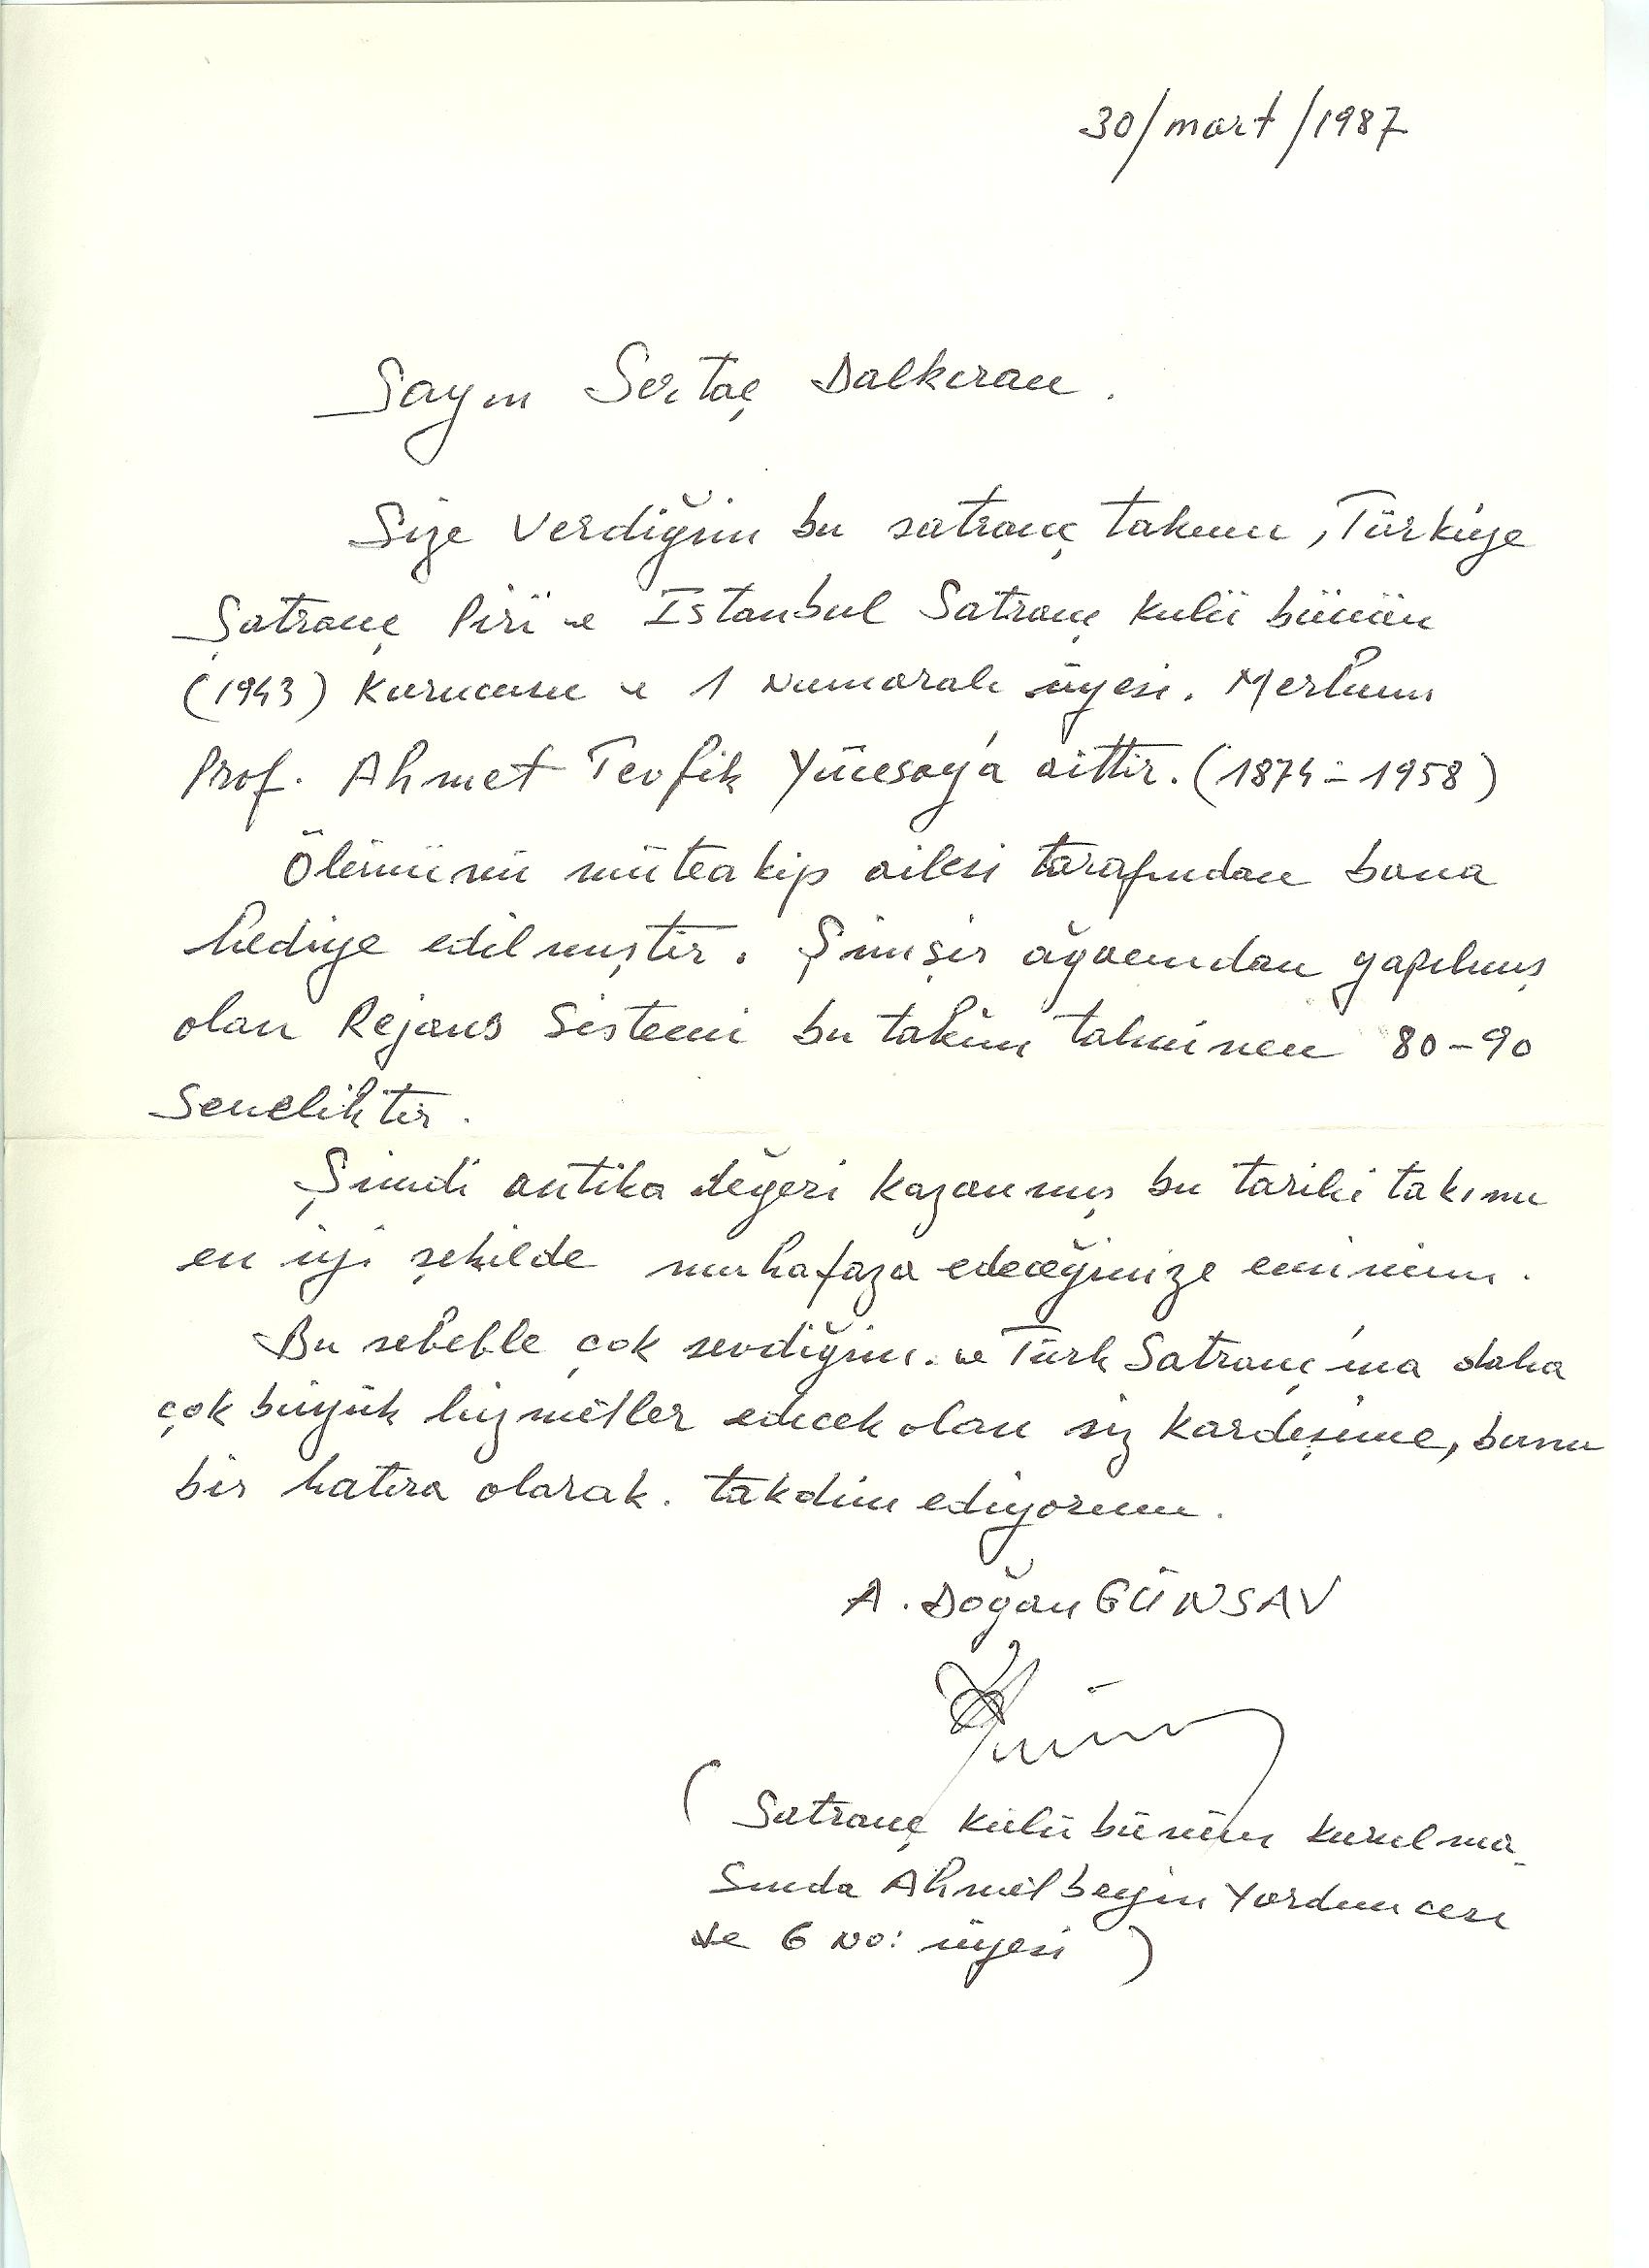 30/mart/1987
Sayın Sertaç Dalkıran.
Size verdiğim bu satranç takımı, Türkiye
Şatranç Piri ve Istanbul Satranç Kulübünün
(1943) Kurucusu ve 1 Numaralı üyesi. Merhum
Prof. Ahmet Tevfik Yücesoy'a aittir. (1874-1958)
Ölümünü müteakip ailesi tarafından bana
hediye edilmiştir. Şimşir ağacından yapılmış
olan Rejans Sistemi bu takım tahminen 80-90
Seneliktir.
Şimdi antika değeri kazanmış bu tarihi takımı
en iyi şekilde muhafaza edeceğinize eminim.
Bu sebeble çok sevdiğim. ve Türk Satranç'ına daha
çok büyük hizmetler edecek olan siz kardeşime, bunu
bir hatıra olarak. takdim ediyorum.
A. Doğan GÜNSAV
(Satranç Kulübünün kurulma-
sında Ahmet beyin Yardımcısı
ve 6 No: üyesi)